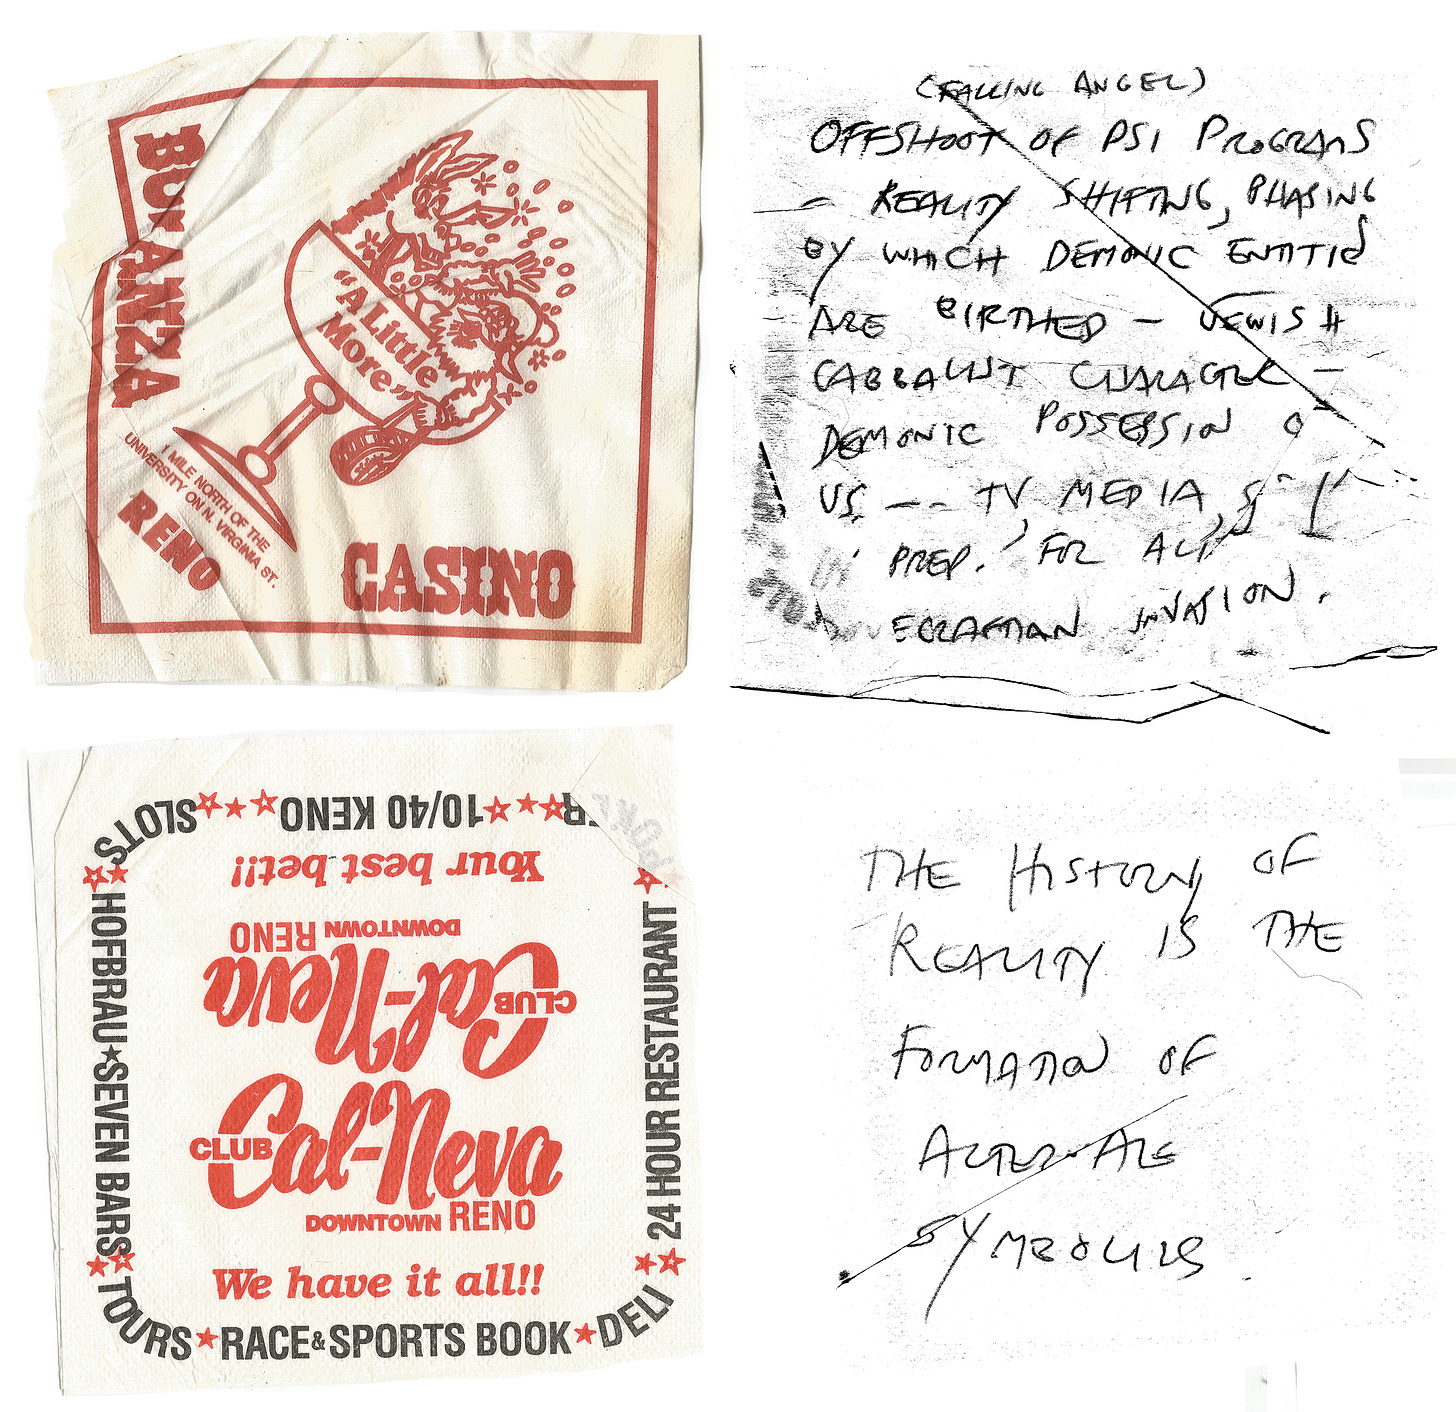 BONANZA
"A Little
More"
1 MILE NORTH OF THE
UNIVERSITY ON N. VIRGINIA ST.
RENO
CASINO
(FALLING ANGEL)
OFFSHOOT OF PSI PROGRAMS
- REALITY SHIFTING, PHASING
BY WHICH DEMONIC ENTITIES
ARE BIRTHED - JEWISH
CABBALIST CHARACTER -
DEMONIC POSSESSION OF
US -- TV, MEDIA,
IN PREP. FOR
INVASION.
SLOTS ★★★ 10/40 KENO ★★★ POKER
Your best bet!!
DOWNTOWN RENO
CLUB Cal-Neva
CLUB Cal-Neva
DOWNTOWN RENO
We have it all!!
HOFBRAU★SEVEN BARS
24 HOUR RESTAURANT
TOURS★RACE&SPORTS BOOK★DELI
THE HISTORY OF
REALITY IS THE
FORMATION OF
SYMBOLS.